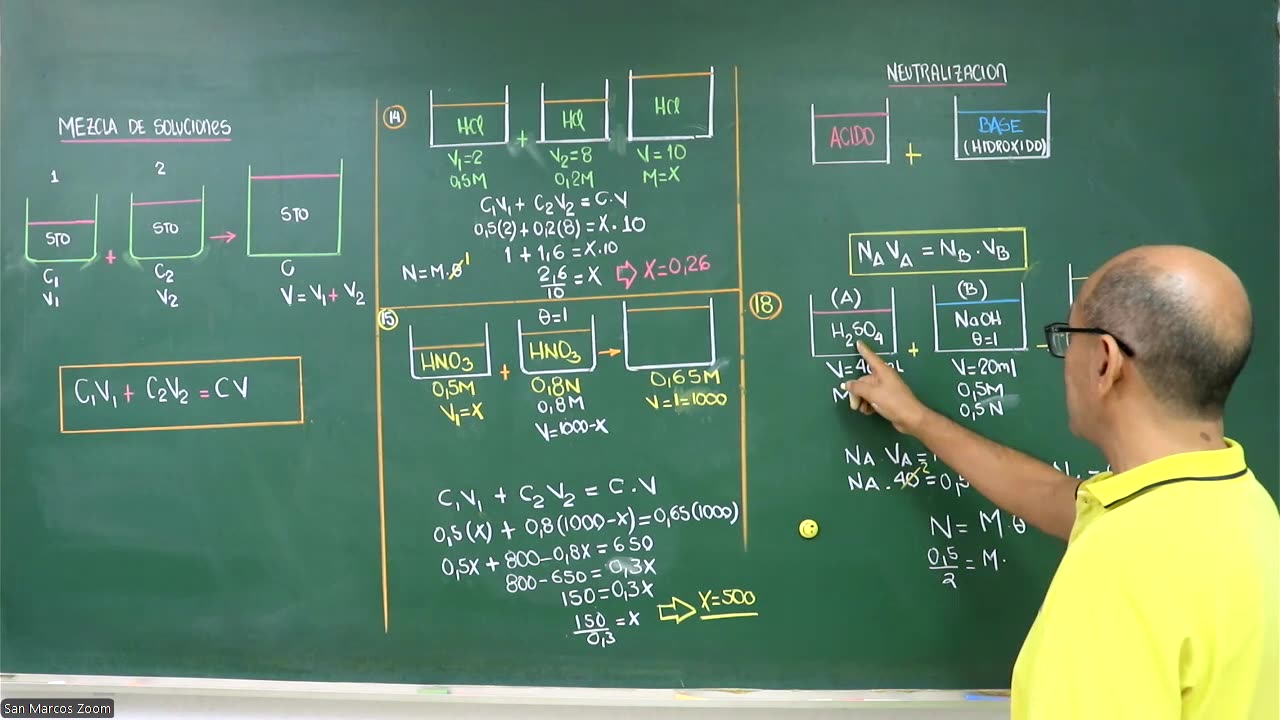 MEZCLA DE SOLUCIONES
1
2
STO
+
STO
→
STO
C₁
V₁
C₂
V₂
C
V=V₁+V₂
C₁V₁ + C₂V₂ = CV
14
HCl
+
HCl
HCl
V₁=2
0,5M
V₂=8
0,2M
V=10
M=X
C₁V₁ + C₂V₂ = C·V
0,5(2)+0,2(8)=X·10
1+1,6=X·10
2,6/10=X
⇨ X=0,26
N=M·θ 1
15
θ=1
HNO₃
+
HNO₃
→
0,5M
V₁=X
0,8N
0,8M
V=1000-X
0,65M
V=1=1000
C₁V₁ + C₂V₂ = C·V
0,5(X) + 0,8(1000-X)=0,65(1000)
0,5X+800-0,8X=650
800-650=0,3X
150=0,3X
150/0,3=X
⇨ X=500
NEUTRALIZACION
ACIDO
+
BASE
(HIDROXIDO)
N_A V_A = N_B · V_B
18
(A)
H₂SO₄
+
(B)
NaOH
θ=1
V=40ml
M
V=20ml
0,5M
0,5N
N_A · V_A =
N_A · 40 2 =0,5
N = M·θ
0,5/2 = M·
San Marcos Zoom